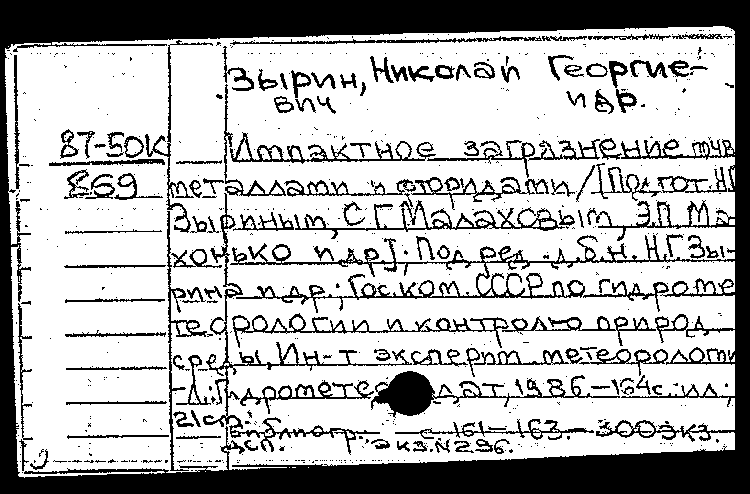 Зырин, Николай Георгие-
вич и др.
87-50К Импактное загрязнение почв
869 металлами и фторидами /[Подгот. Н.Г.
Зыриным, С.Г. Малаховым, Э.П. Ма-
хонько и др.]; Под ред. д.б.н. Н.Г. Зы-
рина и др.; Гос. ком. СССР по гидроме
теорологии и контролю природ
среды, Ин-т эксперим. метеорологии
-Л.: 1986.-164с.: ил;
21см.
Библиогр.: с 161-163.- 300экз.
ДСП. экз.N296.